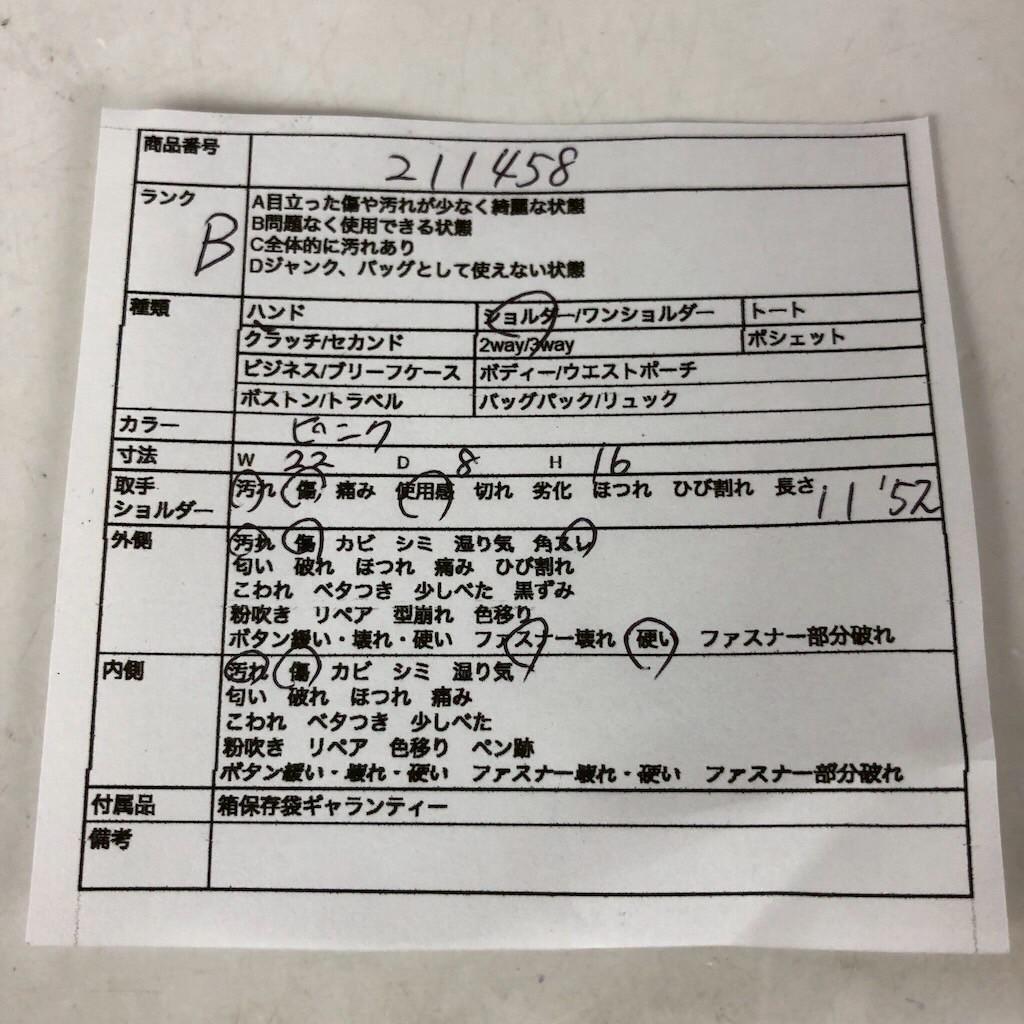 商品番号 211458
ランク B
A目立った傷や汚れが少なく綺麗な状態
B問題なく使用できる状態
C全体的に汚れあり
Dジャンク、バッグとして使えない状態
種類 ハンド ショルダー/ワンショルダー トート
クラッチ/セカンド 2way/3way ポシェット
ビジネス/ブリーフケース ボディー/ウエストポーチ
ボストン/トラベル バッグパック/リュック
カラー ピンク
寸法 W 22 D 8 H 16
取手 汚れ 傷 痛み 使用感 切れ 劣化 ほつれ ひび割れ 長さ
ショルダー
外側 汚れ 傷 カビ シミ 湿り気 角スレ
匂い 破れ ほつれ 痛み ひび割れ
こわれ ベタつき 少しべた 黒ずみ
粉吹き リペア 型崩れ 色移り
ボタン緩い・壊れ・硬い ファスナー壊れ 硬い ファスナー部分破れ
内側 汚れ 傷 カビ シミ 湿り気
匂い 破れ ほつれ 痛み
こわれ ベタつき 少しべた
粉吹き リペア 色移り ペン跡
ボタン緩い・壊れ・硬い ファスナー壊れ・硬い ファスナー部分破れ
付属品 箱保存袋ギャランティー
備考